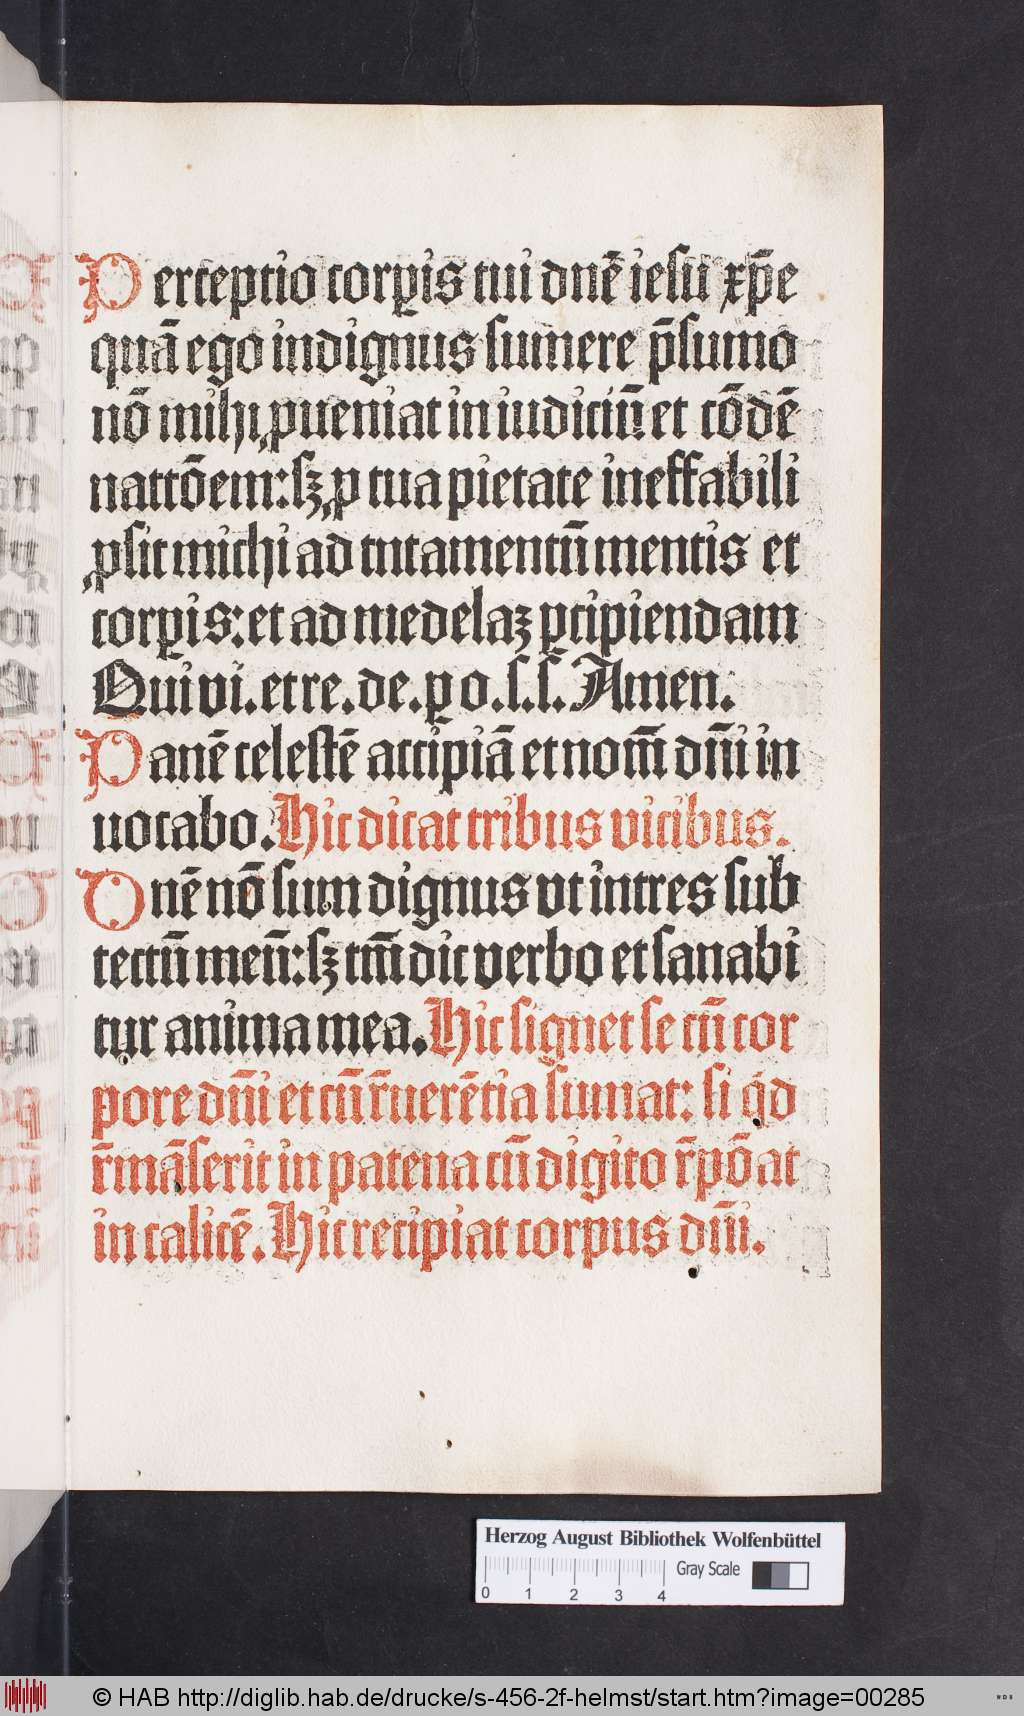 Perceptio corꝑis tui dnē iesu xp̄e
quā ego indignus sumere p̄sumo
nō mihi ꝓueniat in iudiciū et cōdē
nattōem: sꝫ ꝓ tua pietate ineffabili
ꝓsit michi ad tutamentū mentis et
corꝑis: et ad medelaꝫ ꝑcipiendam
Qui vi. et re. de. ꝑ o. s. s. Amen.
Panē celestē accipiā et nom̄ dn̄i in
uocabo. Hic dicat tribus vicibus.
Dnē nō sum dignus vt intres sub
tectū meū: sꝫ tm̄ dic verbo et sanabi
tur anima mea. Hic signet se cū cor
pore dn̄i et cū r̄uerētia sumat: si qd
r̄māserit in patena cū digito r̄pōat
in calicē. Hic recipiat corpus dn̄i.
Herzog August Bibliothek Wolfenbüttel
Gray Scale
0 1 2 3 4
© HAB http://diglib.hab.de/drucke/s-456-2f-helmst/start.htm?image=00285